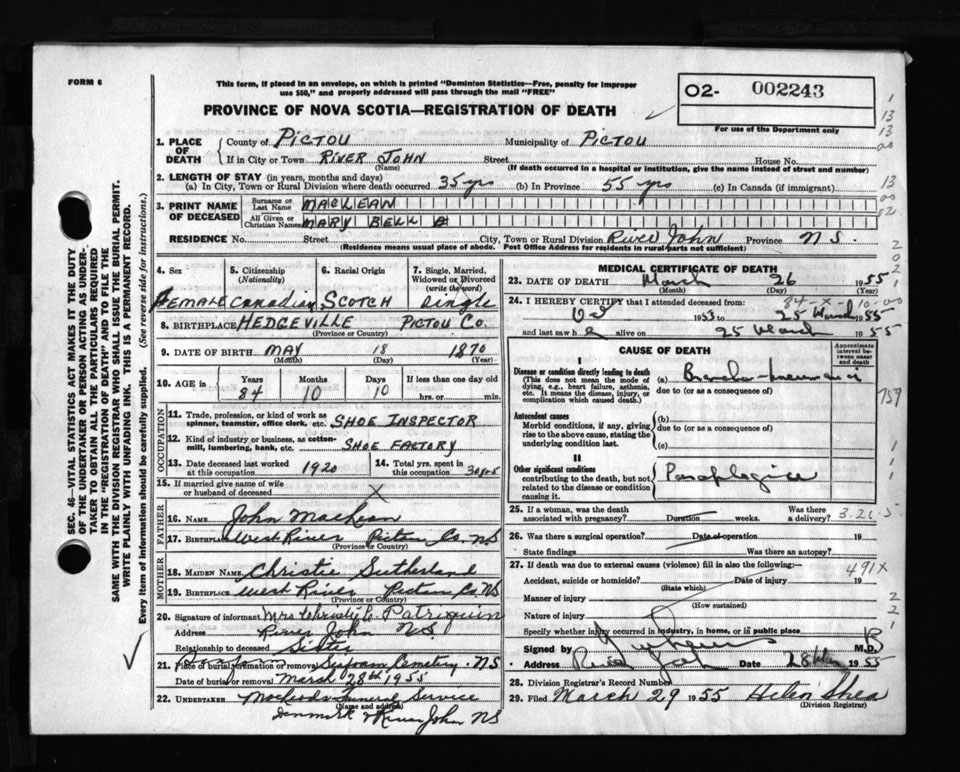 FORM 6
This form, if placed in an envelope, on which is printed "Dominion Statistics—Free, penalty for improper
use $50," and properly addressed will pass through the mail "FREE"
PROVINCE OF NOVA SCOTIA—REGISTRATION OF DEATH
02- 002243
For use of the Department only
1. PLACE OF DEATH County of PICTOU Municipality of PICTOU
If in City or Town RIVER JOHN Street House No.
(Name) (If death occurred in a hospital or institution, give the name instead of street and number)
2. LENGTH OF STAY (in years, months and days)
(a) In City, Town or Rural Division where death occurred 35 yrs (b) In Province 55 yrs (c) In Canada (if immigrant)
3. PRINT NAME OF DECEASED Surname or Last Name MACLEAN
All Given or Christian Names MARY BELL
RESIDENCE No. Street City, Town or Rural Division River John Province N S.
(Residence means usual place of abode. Post Office Address for residents in rural parts not sufficient)
4. Sex 5. Citizenship (Nationality) 6. Racial Origin 7. Single, Married, Widowed or Divorced (write the word)
FEMALE Canadian SCOTCH Single
8. BIRTHPLACE HEDGEVILLE PICTOU CO.
(Province or Country)
9. DATE OF BIRTH MAY 18 1870
(Month) (Day) (Year)
10. AGE in Years Months Days If less than one day old
84 10 10 hrs. or min.
OCCUPATION
11. Trade, profession, or kind of work as spinner, teamster, office clerk, etc. SHOE INSPECTOR
12. Kind of industry or business, as cotton-mill, lumbering, bank, etc. SHOE FACTORY
13. Date deceased last worked at this occupation 1920 14. Total yrs. spent in this occupation 30 yrs
15. If married give name of wife or husband of deceased X
FATHER
16. NAME John MacLean
17. BIRTHPLACE West River Pictou Co. NS
(Province or Country)
MOTHER
18. MAIDEN NAME Christie Sutherland
19. BIRTHPLACE West River Pictou Co NS
(Province or Country)
20. Signature of informant Mrs Christy C. Patriquin
Address River John N S.
Relationship to deceased Sister
21. Place of burial, cremation or removal Seafoam Cemetery. NS
Date of burial or removal March 28th 1955
22. UNDERTAKER MacLeods Funeral Service
(Name and address)
Denmark & River John NS
MEDICAL CERTIFICATE OF DEATH
23. DATE OF DEATH March 26 1955
(Month) (Day) (Year)
84-x-10-00
24. I HEREBY CERTIFY that I attended deceased from:
1953 to 25 March 1955
and last saw h e alive on 25 March 1955
CAUSE OF DEATH
Approximate interval between onset and death
I
Disease or condition directly leading to death (a)
(This does not mean the mode of dying, e.g., heart failure, asthenia, etc. It means the disease, injury, or complication which caused death.)
due to (or as a consequence of)
Antecedent causes (b)
Morbid conditions, if any, giving rise to the above cause, stating the underlying condition last.
due to (or as a consequence of)
(c)
II
Other significant conditions contributing to the death, but not related to the disease or condition causing it.
Paraplegia
25. If a woman, was the death associated with pregnancy? Duration weeks. Was there a delivery?
26. Was there a surgical operation? Date of operation 19
State findings Was there an autopsy?
27. If death was due to external causes (violence) fill in also the following:— 491X
Accident, suicide or homicide? Date of injury 19
(State which)
Manner of injury
(How sustained)
Nature of injury
Specify whether injury occurred in industry, in home, or in public place
Signed by M.D.
Address River John Date 28 Mar 1955
28. Division Registrar's Record Number
29. Filed March 29 1955 Helen Shea
(Division Registrar)
SEC. 46—VITAL STATISTICS ACT MAKES IT THE DUTY
OF THE UNDERTAKER OR PERSON ACTING AS UNDER-
TAKER TO OBTAIN ALL THE PARTICULARS REQUIRED
IN THE "REGISTRATION OF DEATH" AND TO FILE THE
SAME WITH THE DIVISION REGISTRAR WHO SHALL ISSUE THE BURIAL PERMIT.
WRITE PLAINLY WITH UNFADING INK. THIS IS A PERMANENT RECORD.
Every item of information should be carefully supplied. (See reverse side for instructions.)